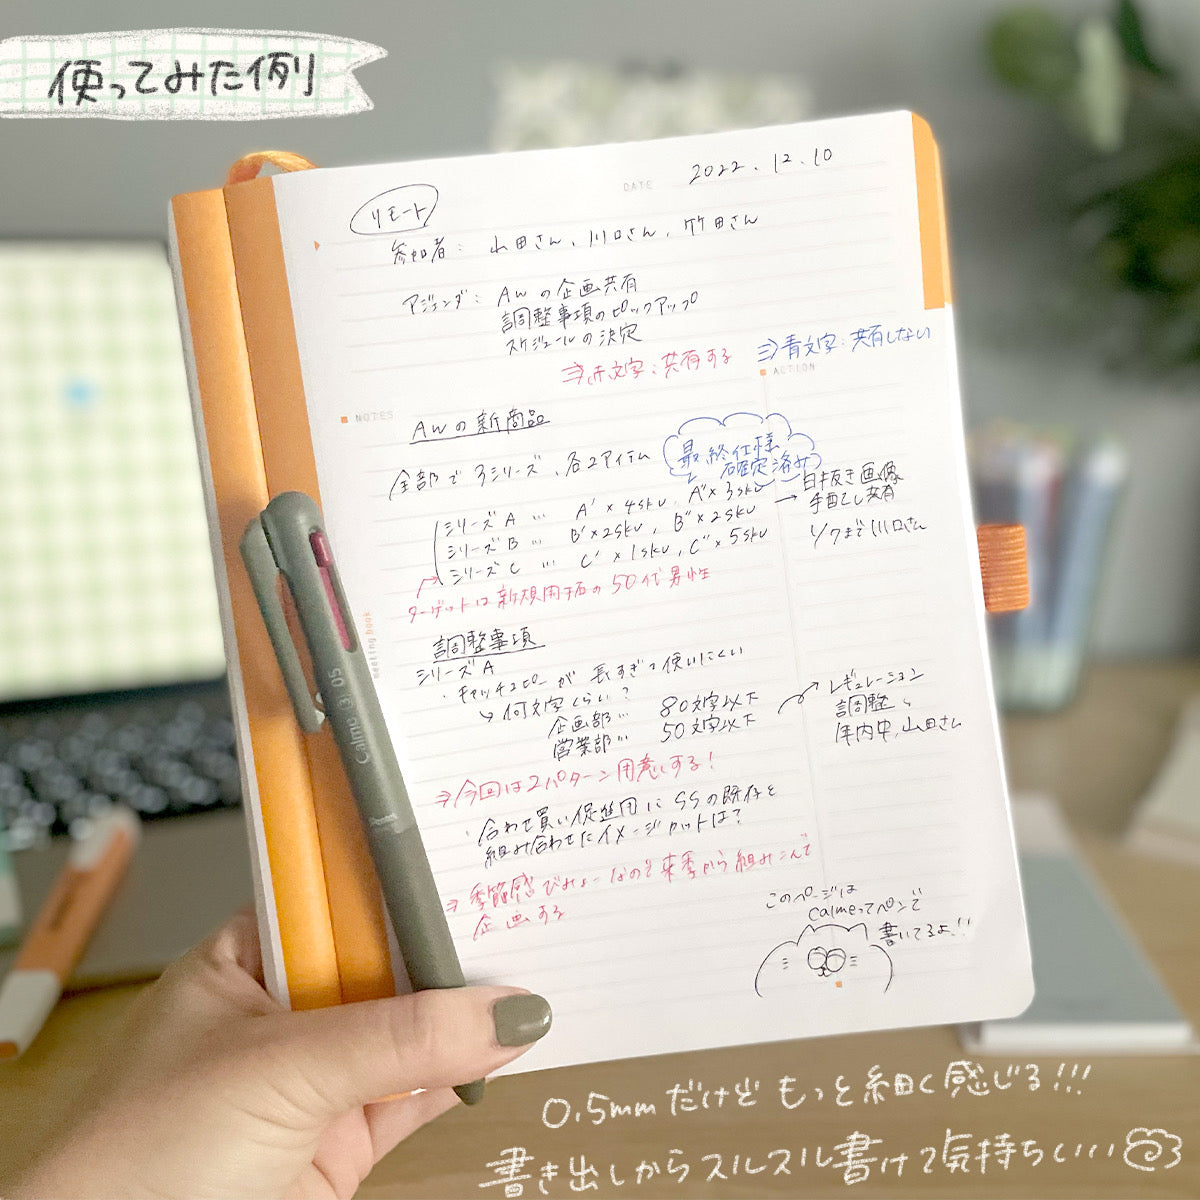 使ってみた例
DATE 2022.12.10
リモート
参加者: 山田さん、川口さん、竹田さん
アジェンダ: Awの企画共有
調整事項のピックアップ
スケジュールの決定
⇒赤文字:共有する
⇒青文字:共有しない
NOTES
ACTION
Awの新商品
全部で3シリーズ、各2アイテム
最終仕様
確定済み
シリーズA … A'×4sku、A"×3sku
シリーズB … B'×2sku、B"×2sku
シリーズC … C'×1sku、C"×5sku
→白抜き画像
手配し共有
1/7まで川口さん
ターゲットは新規開拓の50代男性
meeting book
調整事項
シリーズA
・キャッチコピーが長すぎて使いにくい
↳何文字くらい?
企画部… 80文字以下
営業部… 50文字以下
レギュレーション
調整
年内中、山田さん
⇒今回は2パターン用意する!
・合わせ買い促進用にSSの既存と
組み合わせたイメージカットは?
⇒季節感びみょーなので来季から組みこんで
企画する
このページは
calmeってペンで
書いてるよ!!
Calme 3; 05
Pentel
0.5mmだけどもっと細く感じる!!!
書き出しからスルスル書けて気持ちいい…